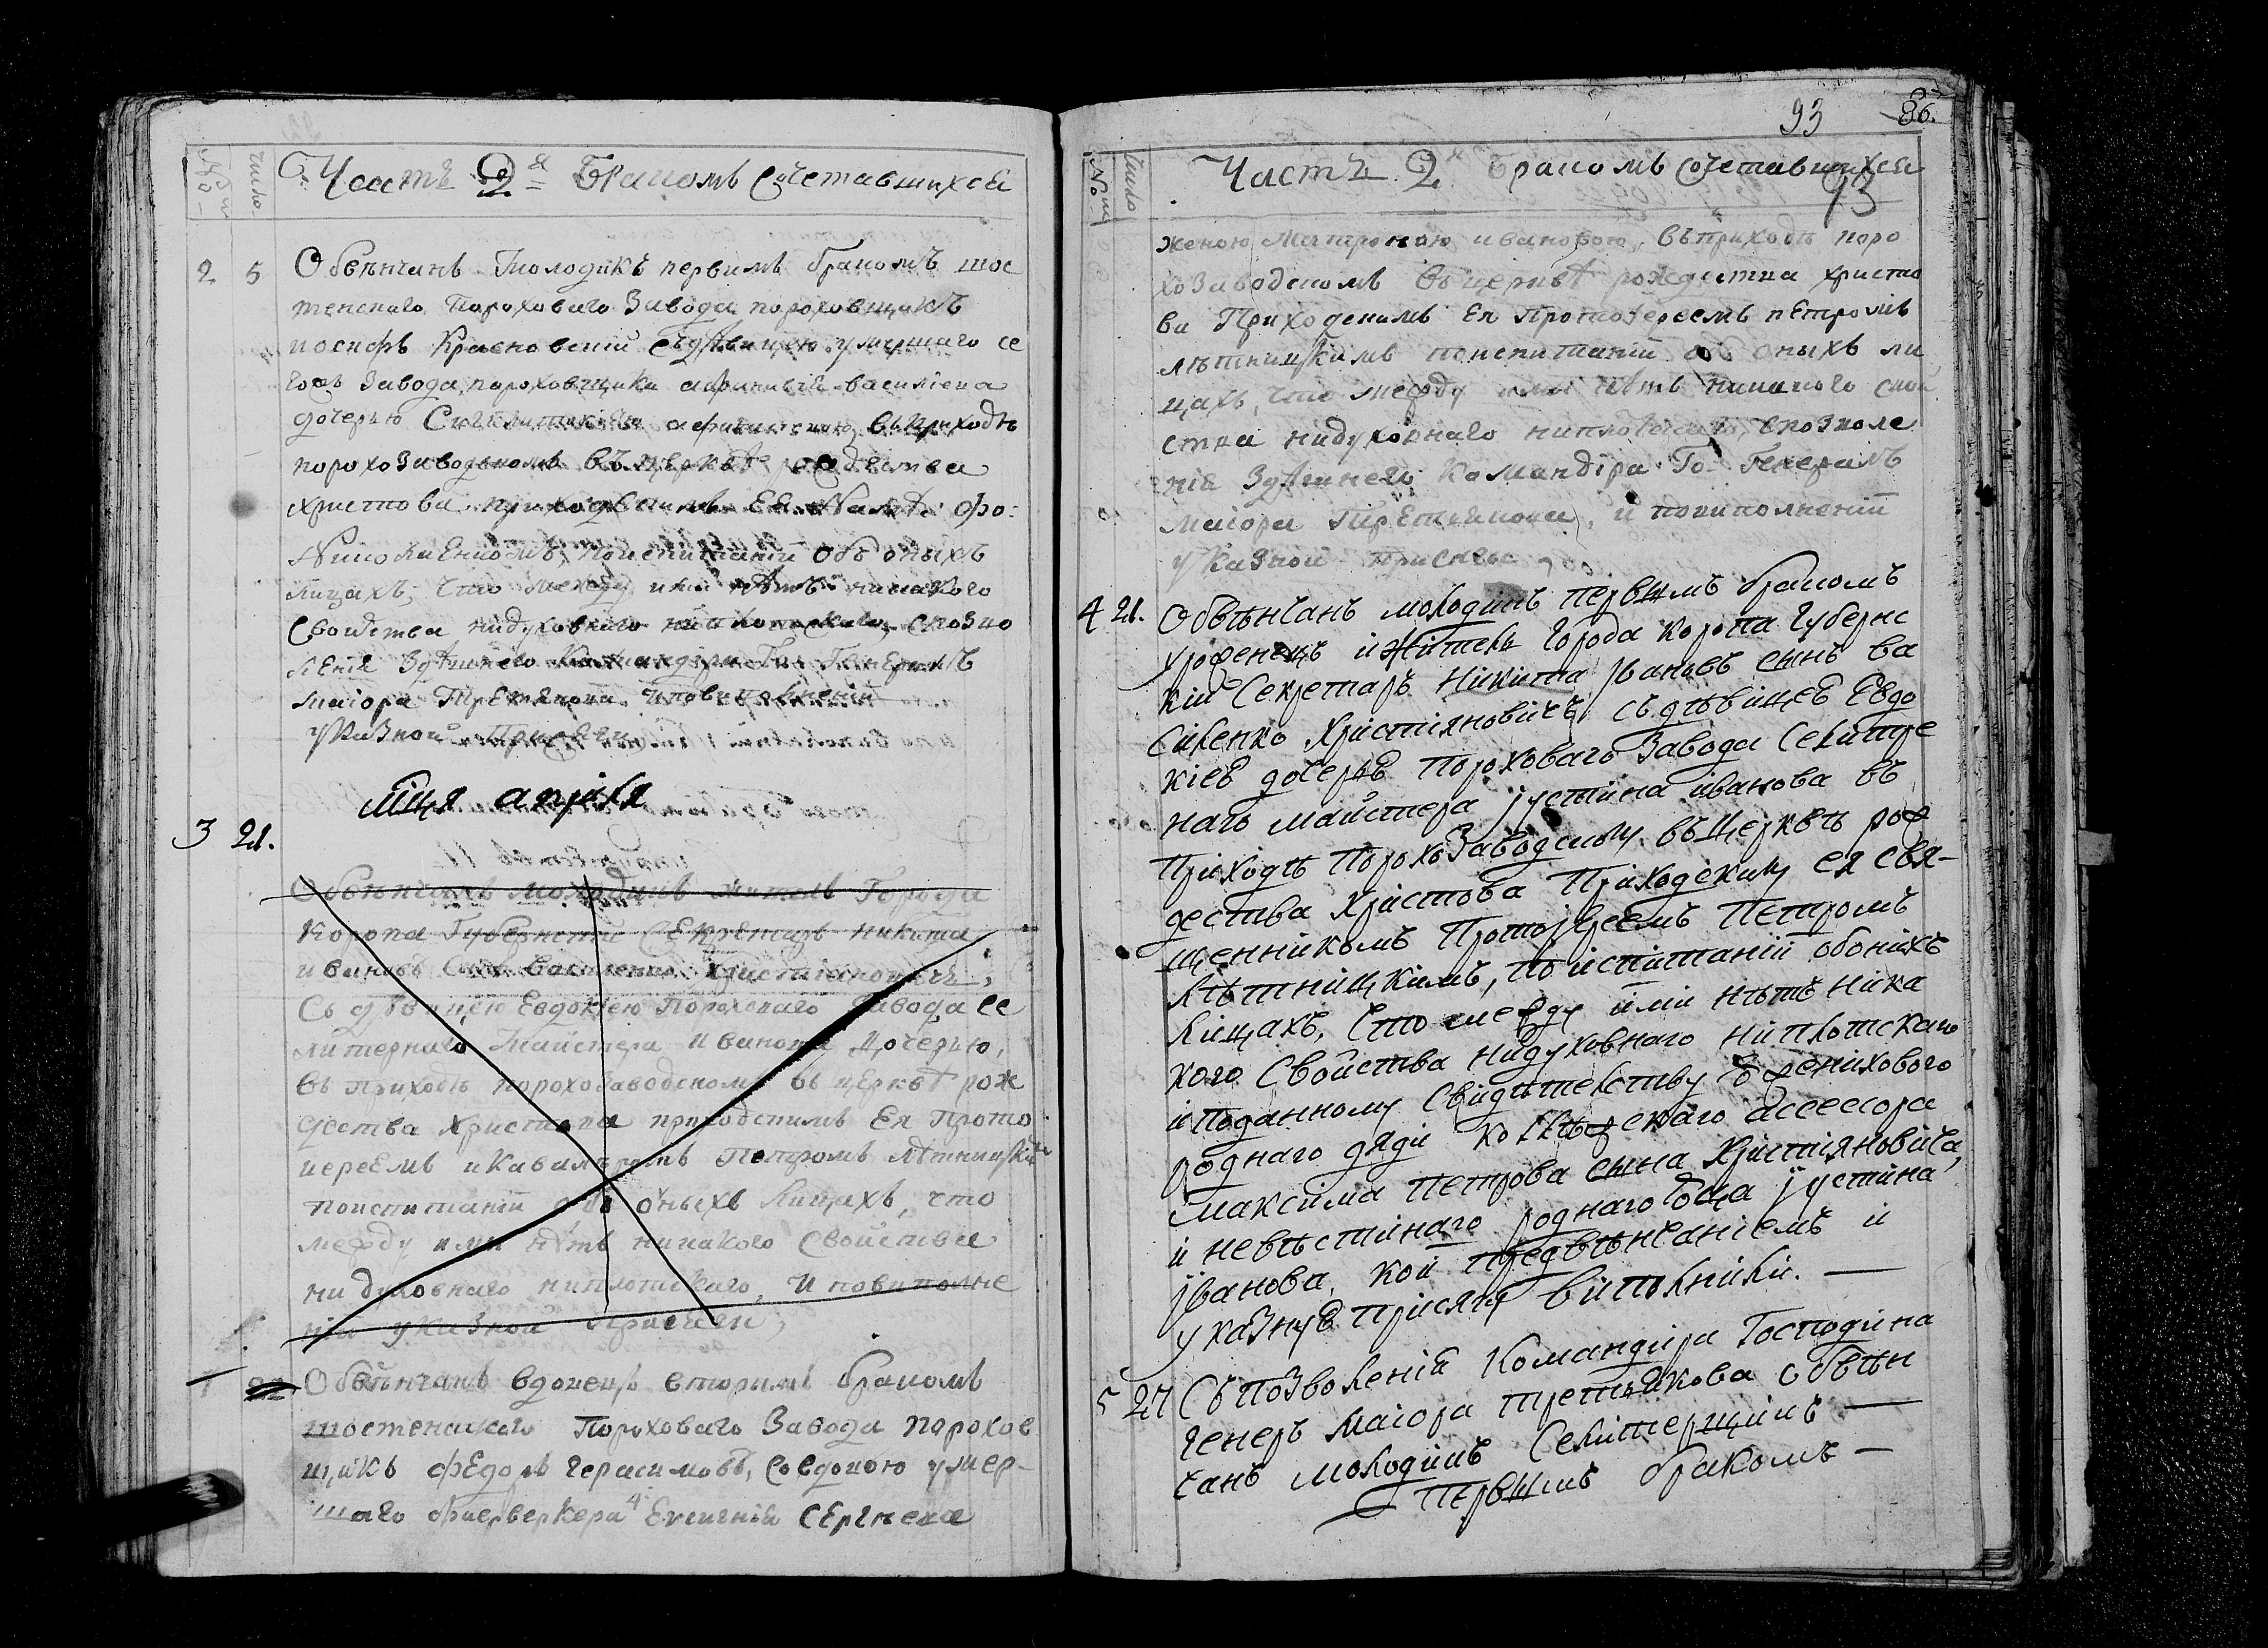 №
число
Часть 2я Бракомъ сочетавшихся
2 5 Обвѣнчанъ молодикъ первимъ бракомъ шос
тенскаго Пороховаго Завода пороховщикъ
иосифъ Красновскій съдѣвицею умершаго се
гожъ Завода пороховщика василіева
дочерью вприходѣ
порохозаводскомъ въцерквѣ рождества
христова приходскимъ Ея
поиспитаніи объ оныхъ
лицахъ, что между ими нѣтъ никакого
Свойства нидуховнаго ниплотскаго, спозво
ленія Здѣшнего Командира Го: Генералъ
маіора Третякова иповиполненіи
указной Присяги
мца апріля
3 21.
Обвѣнчанъ молодикъ житель Города
Коропа Губернскій Секретарь никита
ивановъ Сынъ Василенко христіановичъ,
Съ дѣвицею Евдокіею Пороховаго Завода се
литернаго майстера иванова дочерью,
въ приходѣ порохозаводскомъ въ церквѣ рож
дества Христова приходскимъ Ея Прото
иереемъ икавалеромъ Петромъ лѣтницким
поиспитаніи объ оныхъ лицахъ, что
между ими нѣтъ никакого Свойства
ни духовнаго ниплотскаго, и повиполне
ніи указной присяги,
Обвѣнчанъ вдовецъ вторымъ бракомъ
шостенскаго Пороховаго Завода порохов
щикъ Федоръ Герасимовъ, совдовою умер-
шаго фиерверкера Сергѣева
93 86.
№
число
Часть 2я Бракомъ сочетавшихся
93
женою Матроною ивановою, въприходѣ поро
хозаводскомъ въцерквѣ рождества христо
ва Приходскимъ Ея Протоіереемъ пЕтромъ
лѣтницкимъ поиспитаніи объ оныхъ ли
цахъ, что между ими нѣтъ никакого свой
ства нидуховнаго ниплотскаго, спозволе
нія Здѣшнего Командіра Го: Генералъ
маіора Третякова, и повиполненіи
указной присяги
4 21. Обвѣнчанъ молодикъ первымъ бракомъ
уроженецъ ижитель города коропа Губернс
кій Секретаръ Никита Івановъ сынъ Ва
силенко Христіяновичъ съ дѣвицею Евдо
кіею дочерю Пороховагь Завода Селитре
наго майстера Іустина іванова въ
Приходѣ ПорохоЗаводскому въЦерквѣ рож
дества Христова Приходскиму ея свя-
щенникомъ Протоіереемъ Петромъ
Лѣтницкимъ, по испитаніи обонихъ
лицахъ, Что между ими нѣтъ ника
кого Свойства нидуховнаго ниплотскаго
иподанному Свидѣтелству женихового
роднаго дяди колѣжскаго ассессора
Максима Петрова сына Христіяновича,
и невѣстинаго роднаго отца Іустина
Іванова, кой предвѣнчаніемъ и
указную присягу виполнили. —
5 27 Съпозволенія командира Господина
генеръ маіора третьякова обвѣн
чанъ молодикъ Селитерщикъ —
первымъ бракомъ —